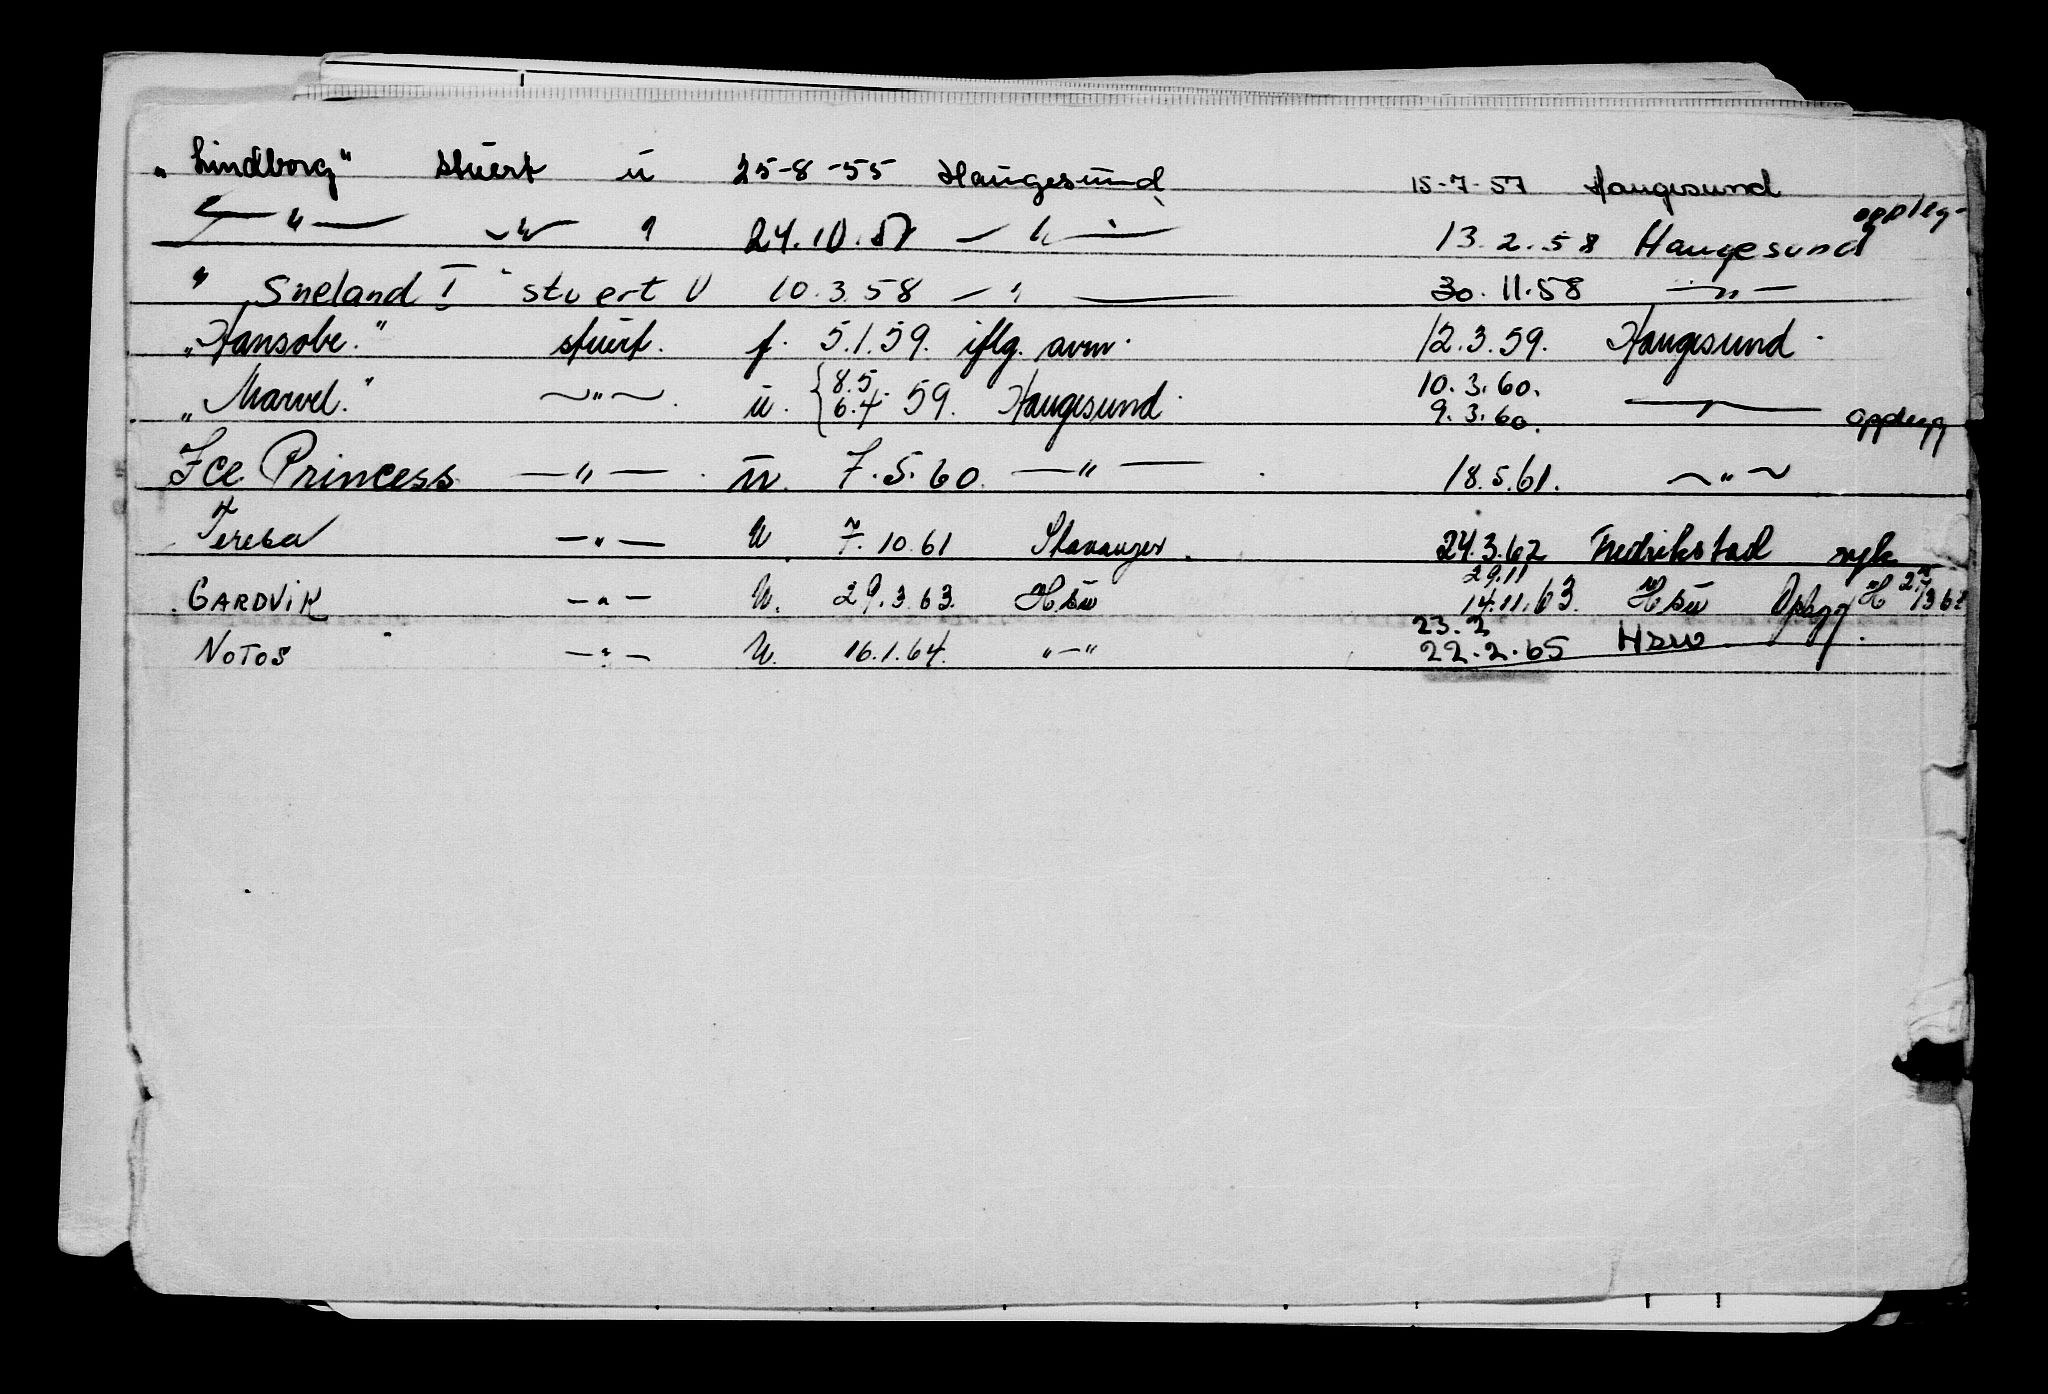 „Lindborg" stuert u 25-8-55 Haugesund 15-7-57 Haugesund
— " — — " — 24.10.57 — " — 13.2.58 Haugesund oppleg-
" Sneland I " stuert U 10.3.58 — " — 30.11.58 — " —
„Hansobe." stuert. f. 5.1.59. iflg. avm. 12.3.59. Haugesund.
„Marvel." — " —. u. { 8.5. 6.4. 59. Haugesund. 10.3.60. 9.3.60. — " — opplegg
Ice Princess — " —. u. 7.5.60. — " —. 18.5.61. — " —
Tereba — " — U. 7.10.61 Stavanger. 24.3.62 Fredrikstad syk
GARDVIK — " — U. 29.3.63. H.su 29.11 14.11.63. Hsu Oplegg H
NOTOS — " — U. 16.1.64. " — " 23.2 22.2.65 Hsu